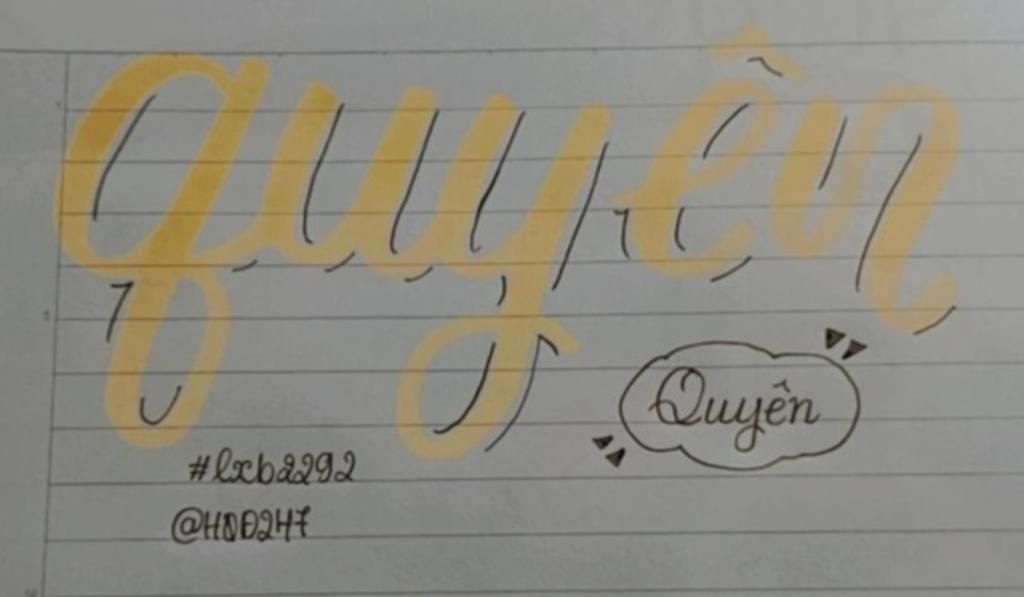 quyên
Quyên
#lxb2292
@HDD247